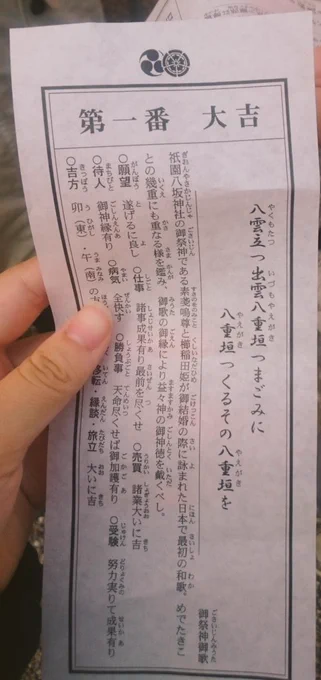 第一番 大吉
八雲立つ出雲八重垣つまごみに
八重垣つくるその八重垣を
御祭神御歌
祇園八坂神社の御祭神である素戔嗚尊と櫛稲田姫が御結婚の際に詠まれた日本で最初の和歌。めでたきこ
との幾重にも重なる様を鑑み、御歌の御縁により益々神の御神徳を戴くべし。
○願望 遂げるに良し ○仕事 諸事成果有り最前を尽くせ ○売買 諸業大いに吉
○待人 御神縁有り ○病気 全快す ○勝負事 天命尽くせば御加護有り ○受験 努力実りて成果有り
○吉方 卯(東)・午(南)の方 移転・縁談・旅立 大いに吉